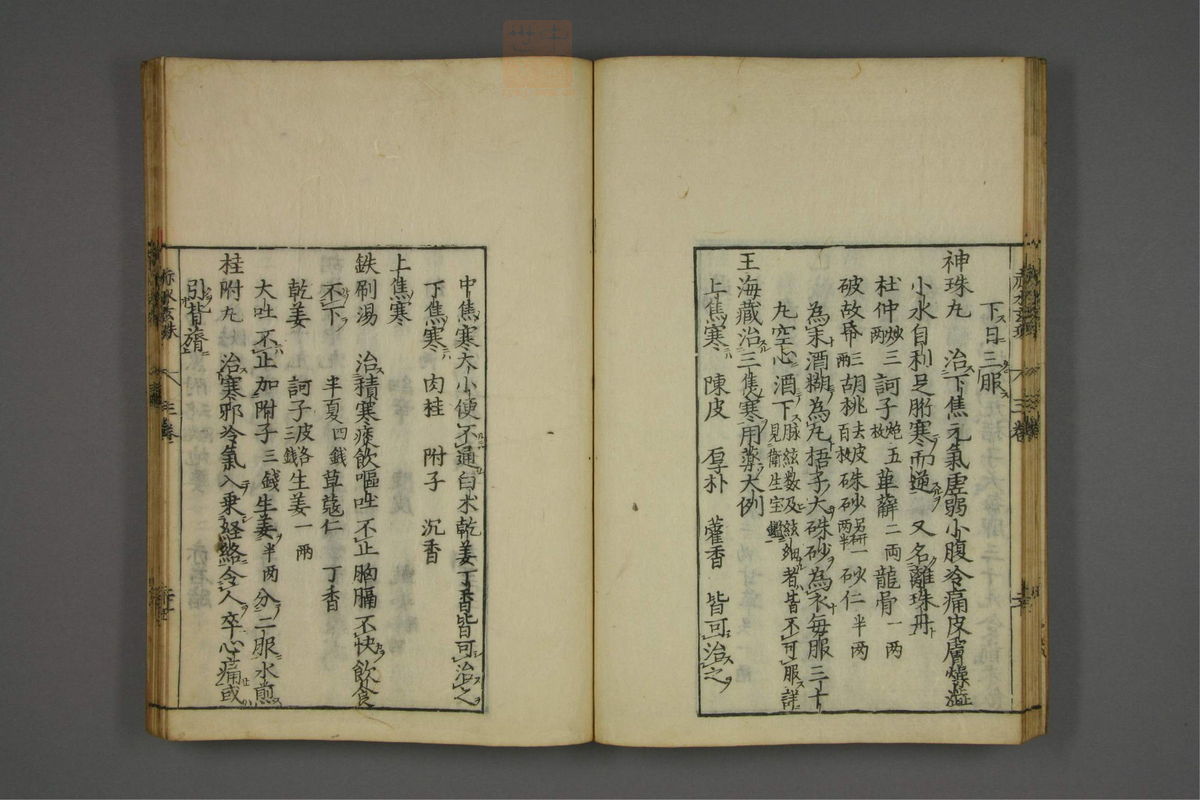 下日三服
神珠丸　治下焦元氣虛弱小腹冷痛皮膚燥澁
小水自利足胻寒而逆　又名離珠丹
杜仲炒三兩　訶子炮五枚　萆薢二兩　龍骨一兩
破故帋三兩　胡桃去皮百枚　硃砂另研一兩半　砂仁半兩
為末酒糊為丸梧子大硃砂為衣每服三十
丸空心酒下脉絃數及絃細者皆不可服詳見衛生宝鑑
王海藏治三焦寒用藥大例
上焦寒　陳皮　厚朴　藿香　皆可治之
中焦寒大小便不通白术乾姜丁香皆可治之
下焦寒　肉桂　附子　沉香
上焦寒
鉄刷湯　治積寒痰飲嘔吐不正胸膈不快飲食
不下　半夏四錢草蔻仁　丁香
乾姜　訶子皮各三錢生姜一兩
大吐不止加附子三錢生姜半兩分二服水煎
桂附丸　治寒邪冷氣入乗経絡令人卒心痛或
引背膂
赤水玄珠　三卷